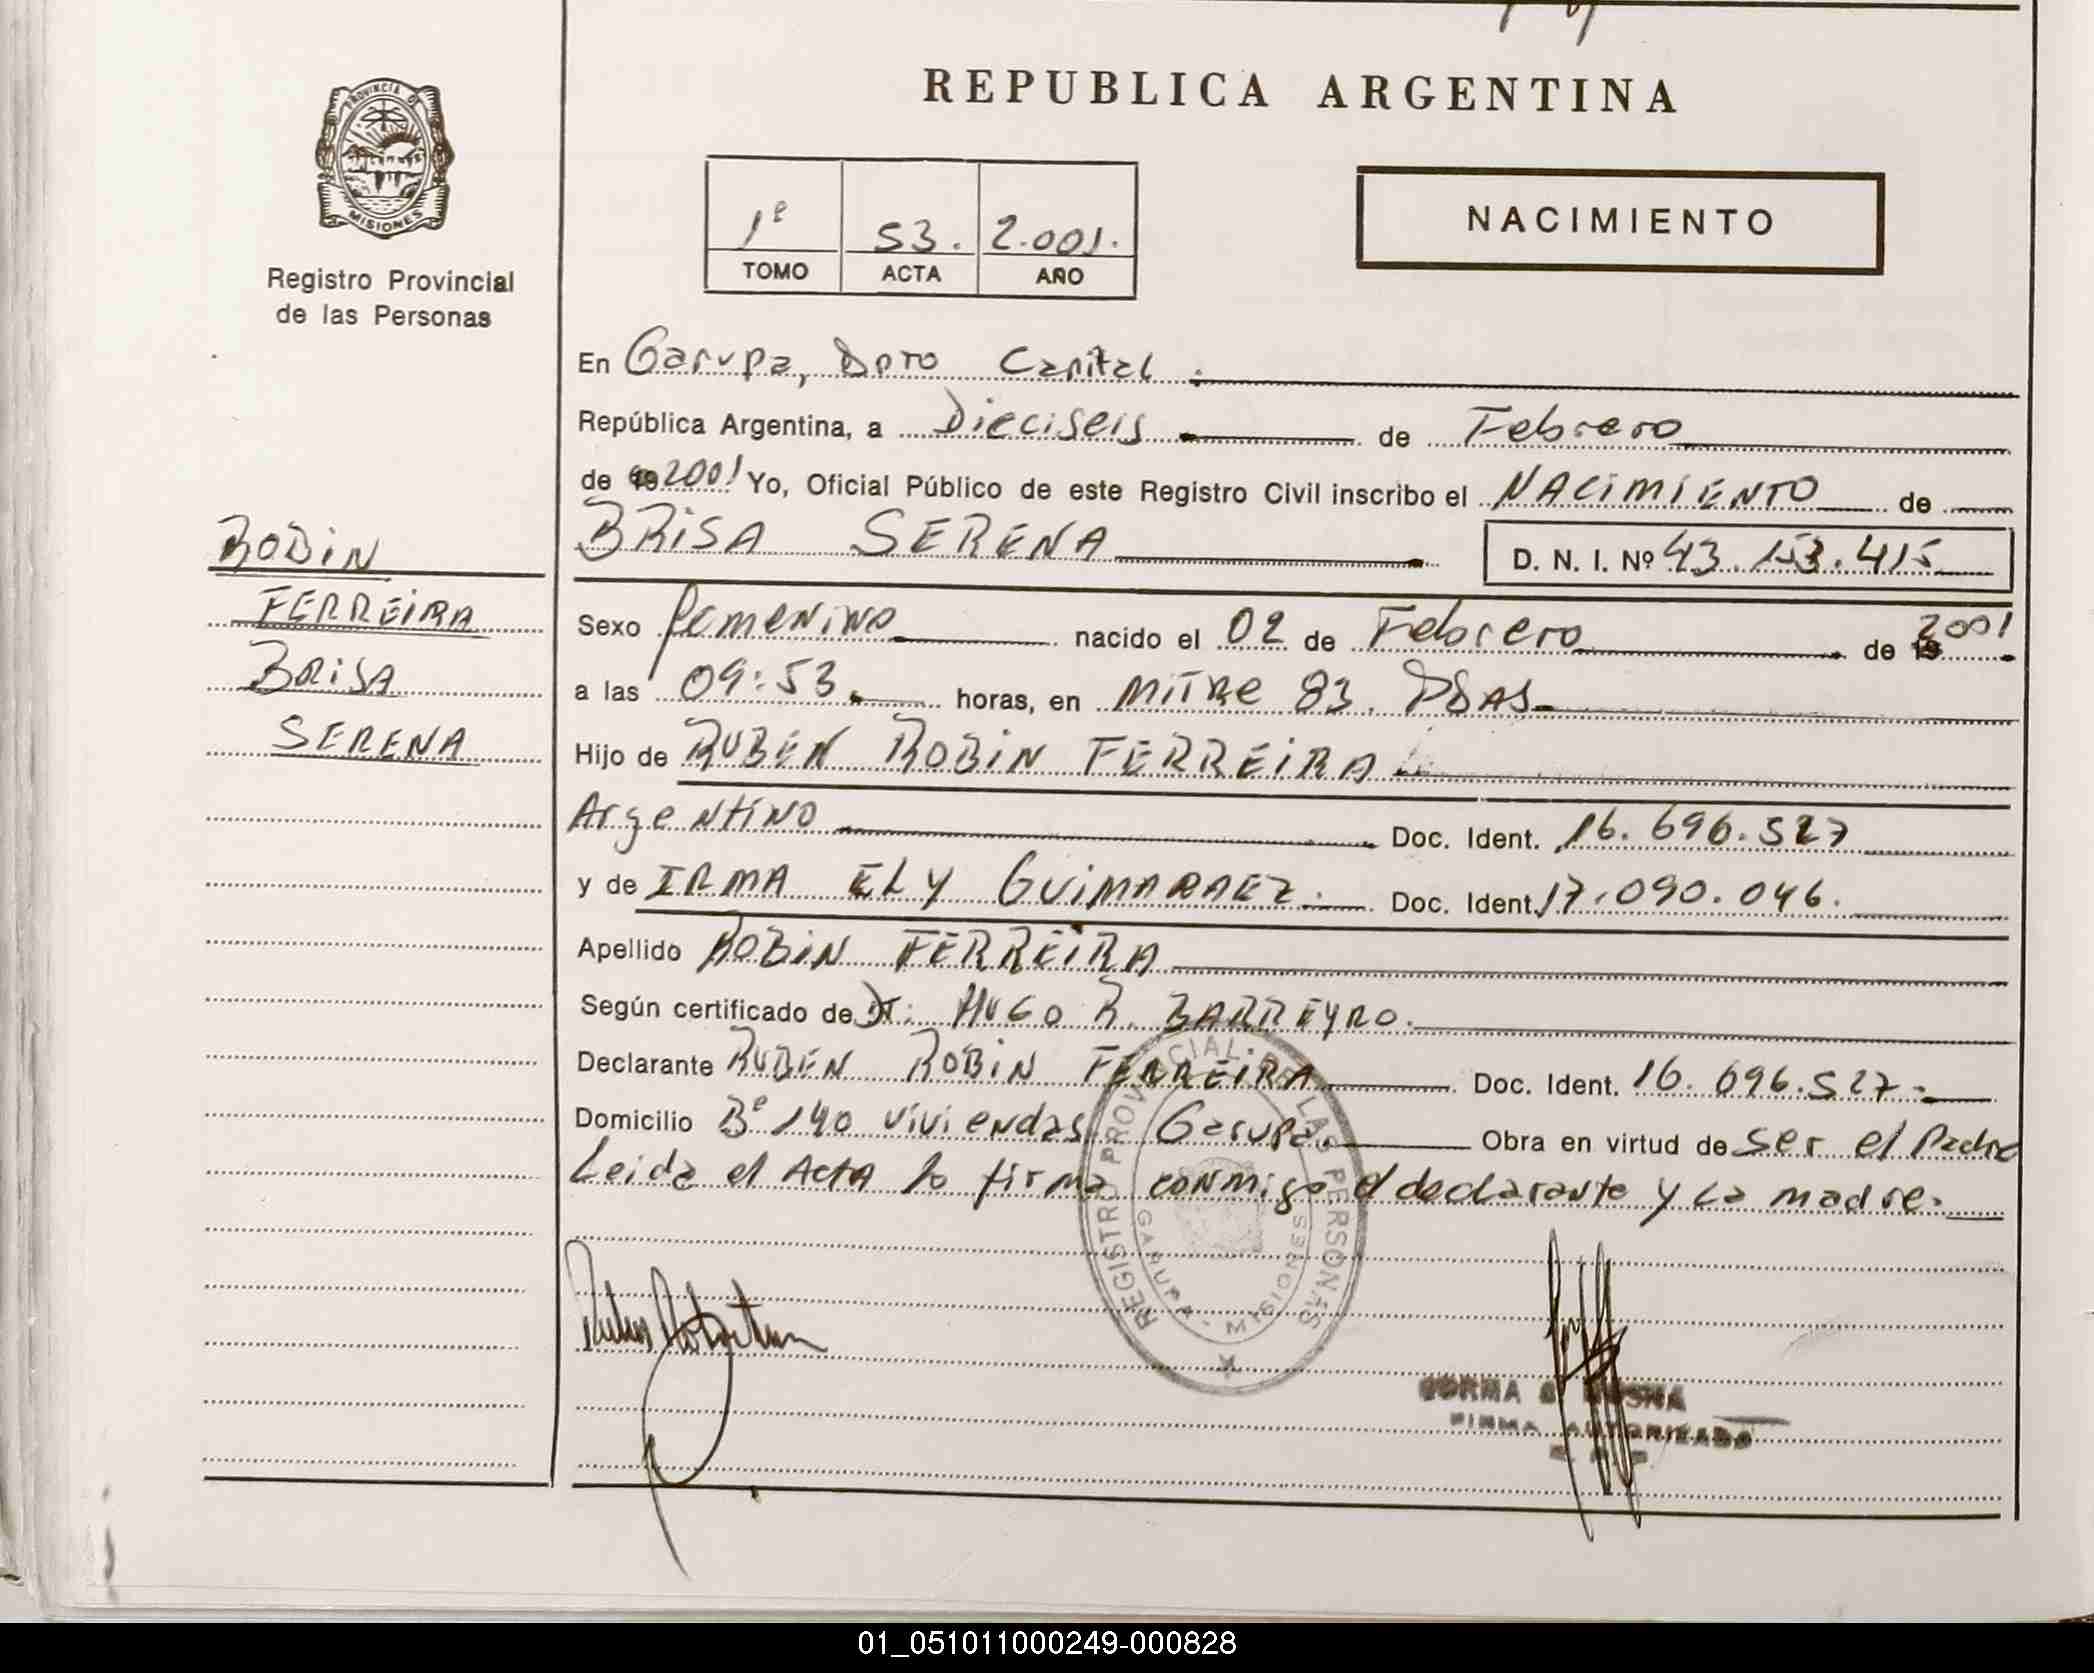 REPUBLICA ARGENTINA
PROVINCIA DE
MISIONES
Registro Provincial
de las Personas
1º 53. 2.001.
TOMO ACTA AÑO
NACIMIENTO
En Garupa, Dpto Capital.
República Argentina, a Dieciseis de Febrero
de 19 2001 Yo, Oficial Público de este Registro Civil inscribo el NACIMIENTO de
BRISA SERENA D. N. I. Nº 43.153.415
ROBIN
FERREIRA
BRISA
SERENA
Sexo femenino nacido el 02 de Febrero de 19 2001
a las 09:53. horas, en MITRE 83. PSAS
Hijo de RUBEN ROBIN FERREIRA
Argentino Doc. Ident. 16.696.527
y de IRMA ELY GUIMARAEZ. Doc. Ident. 17.090.046.
Apellido ROBIN FERREIRA
Según certificado de Dr: HUGO R. BARREYRO.
Declarante RUBEN ROBIN FERREIRA Doc. Ident. 16.696.527
Domicilio Bº 140 viviendas Garupa. Obra en virtud de ser el Padre
Leida el Acta lo firma conmigo el declarante y la madre.
REGISTRO PROVINCIAL DE LAS PERSONAS
GARUPA - MISIONES
FIRMA AUTORIZADO
01_051011000249-000828